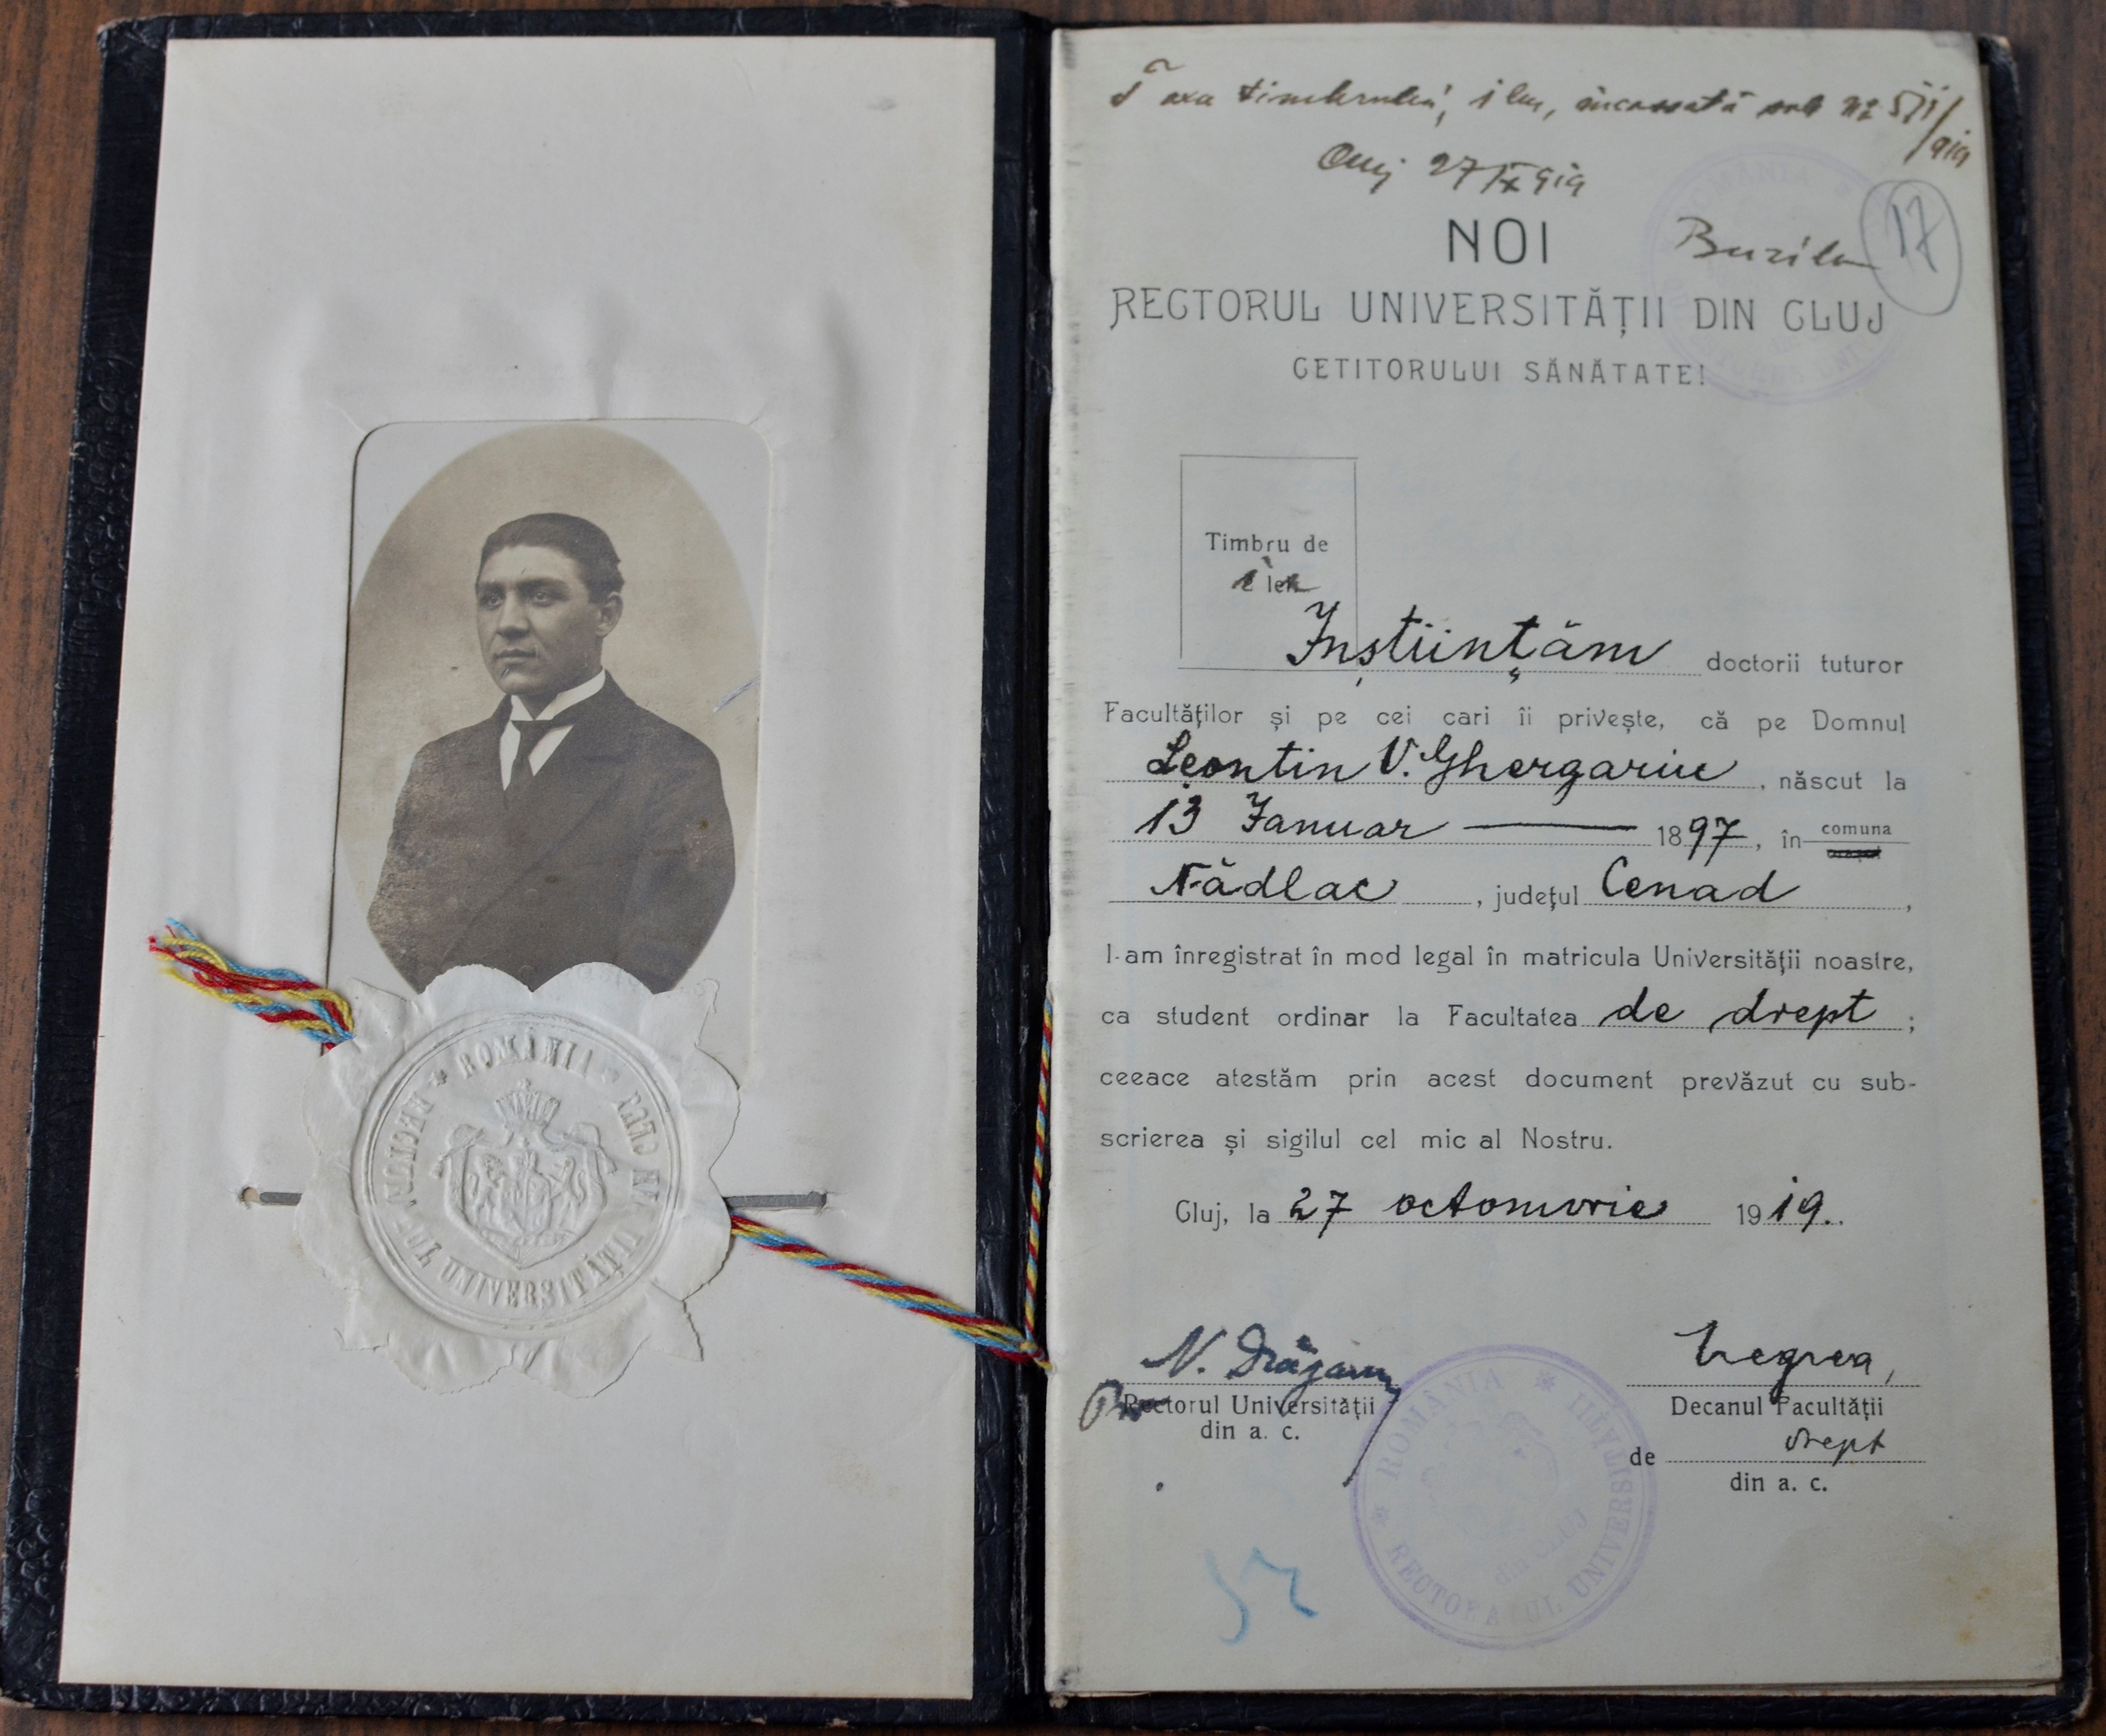 * ROMÂNIA *
RECTORUL UNIVERSITĂȚII DIN CLUJ
Taxa timbrului, 1 leu, incassată sub No
Cluj 27/IX 919
NOI
Buzilu
17
RECTORUL UNIVERSITĂȚII DIN CLUJ
CETITORULUI SĂNĂTATE!
Timbru de
1 leu
Înștiințăm doctorii tuturor
Facultăților și pe cei cari îi privește, că pe Domnul
Leontin V. Ghergariu, născut la
13 Januar 1897, în comuna
Nădlac, județul Cenad,
l-am înregistrat în mod legal în matricula Universității noastre,
ca student ordinar la Facultatea de drept;
ceeace atestăm prin acest document prevăzut cu sub-
scrierea și sigilul cel mic al Nostru.
Cluj, la 27 octomvrie 1919.
N. Drăganu
Negrea,
Rectorul Universității
din a. c.
Decanul Facultății
de drept
din a. c.
* ROMÂNIA *
RECTORATUL UNIVERSITĂȚII
din CLUJ